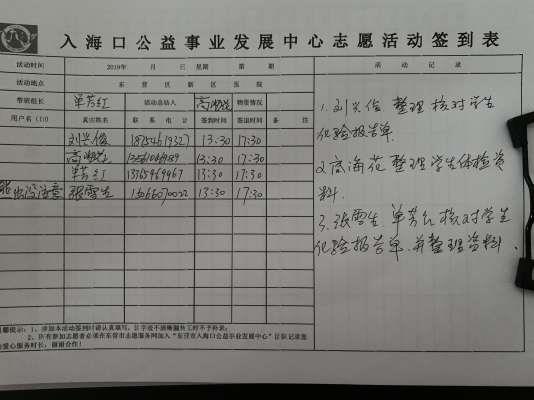 入海口公益事业发展中心志愿活动签到表
活动时间 2019年 月 日 星期 第 期 活动记录
活动地点 东营区新区医院
带班组长 单芳红 活动总人 物资情况
用户名(ID) 真实姓名 联系电话 签到时间 签退时间 备注
刘兴俊 13:30 17:30
高海花 13:30 17:30
单芳红 13765469967 13:30 17:30
张雪生 13:30 17:30
1. 刘兴俊 整理 核对学生
化验报告单
2. 高海花 整理学生体检资
料.
3. 张雪生. 单芳红 核对学生
化验报告单. 并整理资料.
温馨提示：1、参加本活动签到时请认真填写，
2、所有参加志愿者必须在东营市志愿服务网加入"东营市入海口公益事业发展中心"
爱心服务时长，谢谢合作！